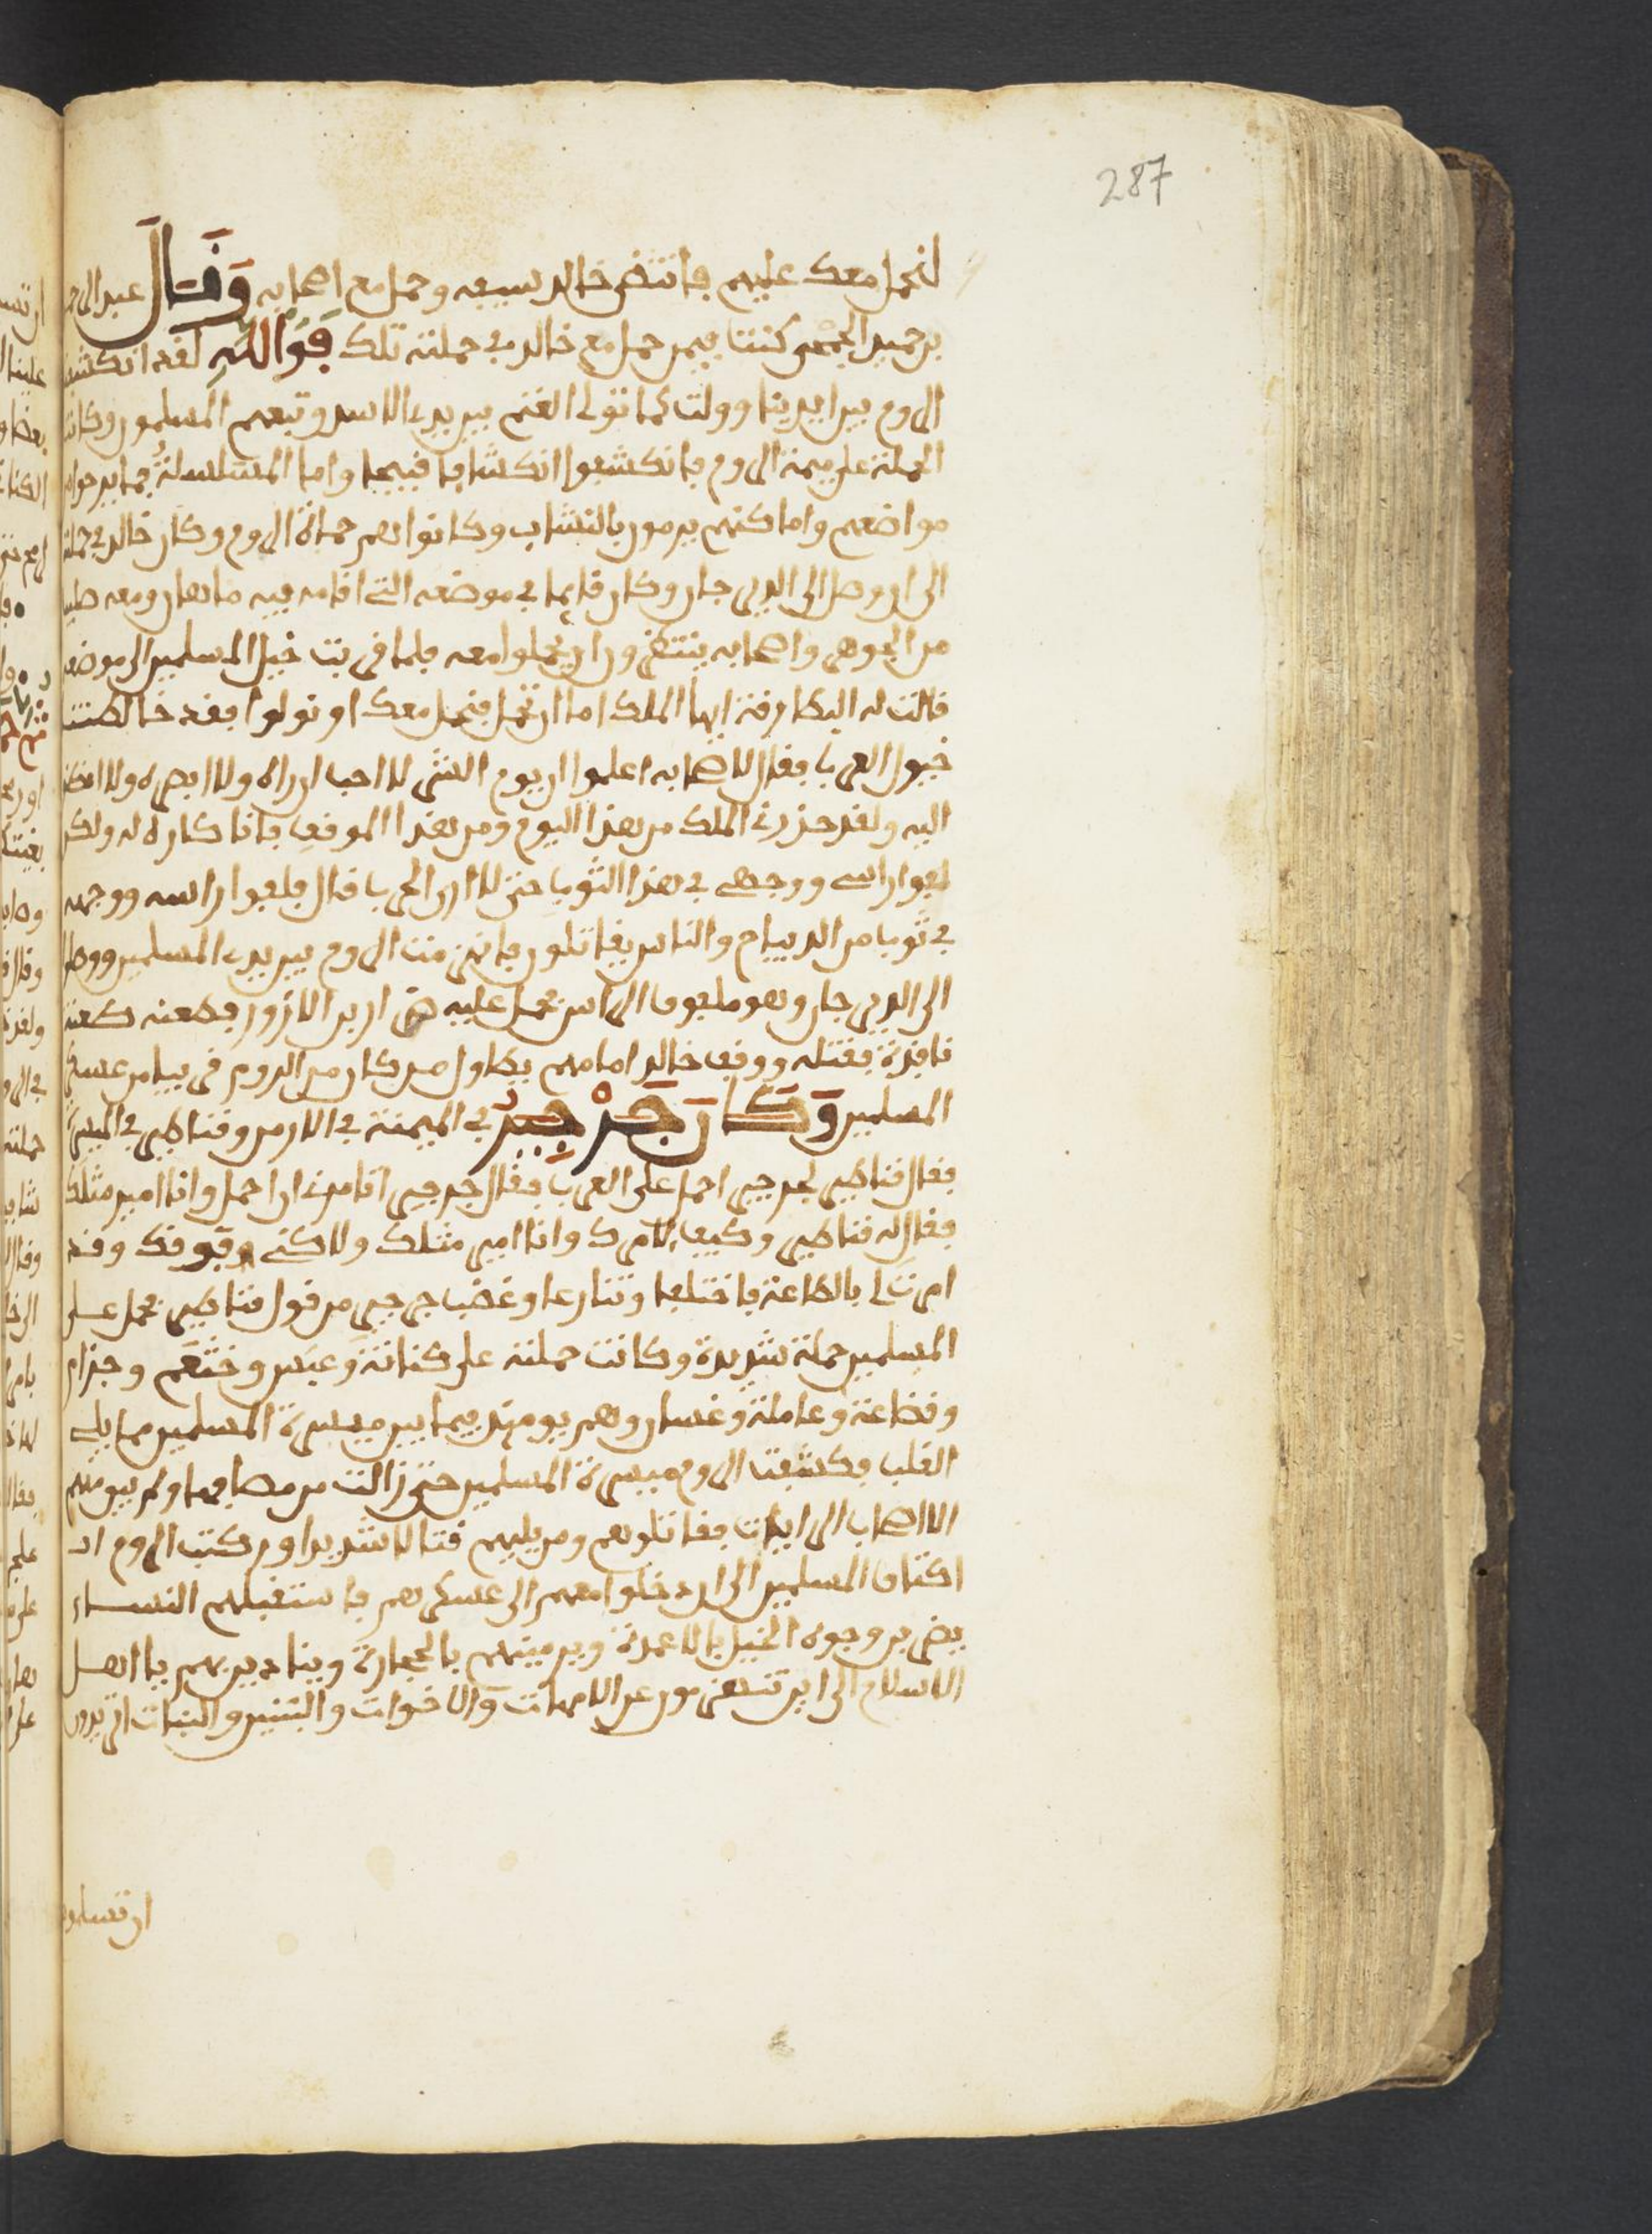 287
لنحمل معك عليهم فانتضى خالد سيفه وحمل مع اصحابه وقال عبد الرحمن
بن حميد الجمحي كنت فيمن حمل مع خالد في حملته تلك فوالله لقد انكشفت
الروم بين ايدينا وولت كما تولى الغنم بين يدي الاسد وتبعهم المسلمون وكانت
الحملة على ميمنة الروم فانكشفوا انكشافا قبيحا واما المسلسلة فما برحوا من
مواضعهم واماكنهم يرمون بالنشاب وكانوا هم حماة الروم وكان خالد في حملته
الى ان وصل الى الديرجان وكان قايما في موضعه التي اقامه فيه ماهان ومعه صليب
من الجوهر واصحابه ينتظرون ان يحملوا معه فلما قربت خيل المسلمين الى موضعه
قالت له البطارقة ايها الملك اما ان تحمل فنحمل معك او نولوا فقد خالطتنا
خيول العرب فقال لاصحابه اعلموا ان يوم الشر لا احب ان اراه ولا ابصره ولا انظر
اليه ولقد حذرت الملك من هذا اليوم ومن هذا الموقف فانا كاره له ولكن
لفوا راسي ووجهي في هذا الثوب حتى لا ارى الحرب قال فلفوا راسه ووجهه
في ثوب من الديباج والناس يقاتلون فانهزمت الروم بين يدي المسلمين ووصل
الى الديرجان وهو ملفوف الراس فحمل عليه ضرار بن الازور فطعنه طعنة
نافذة فقتله ووقف خالد امامهم يطاول من كان من الروم قريبا من عسكر
المسلمين وكان جرجير في الميمنة في الارمن وقناطير في الميسرة
فقال قناطير لجرجير احمل على العرب فقال جرجير اتامرني ان احمل وانا امير مثلك
فقال له قناطير وكيف لا امرك وانا امير مثلك ولاكني فوقك وقد
امرت لي بالطاعة فاختلفا وتنازعا وغضب جرجير من قول قناطير فحمل على
المسلمين حملة شديدة وكانت حملته على كنانة وعبس وخثعم وجذام
وقضاعة وعاملة وغسان وهم يومئذ فيما بين ميسرة المسلمين مما يلي
القلب فكشفت الروم ميسرة المسلمين حتى زالت من مصافها ولم يبق منهم
الا اصحاب الرايات فقاتلوهم ومن يليهم قتالا شديدا وركبت الروم اد
اكتاف المسلمين الى ان دخلوا معهم الى عسكرهم فاستقبلهم النساء
يضربن وجوه الخيل بالاعمدة ويرمينهم بالحجارة وينادين بهم يا اهل
الاسلام الى اين تنهزمون عن الامهات والاخوات والبنين والبنات اتريدون
ان تسلمونا